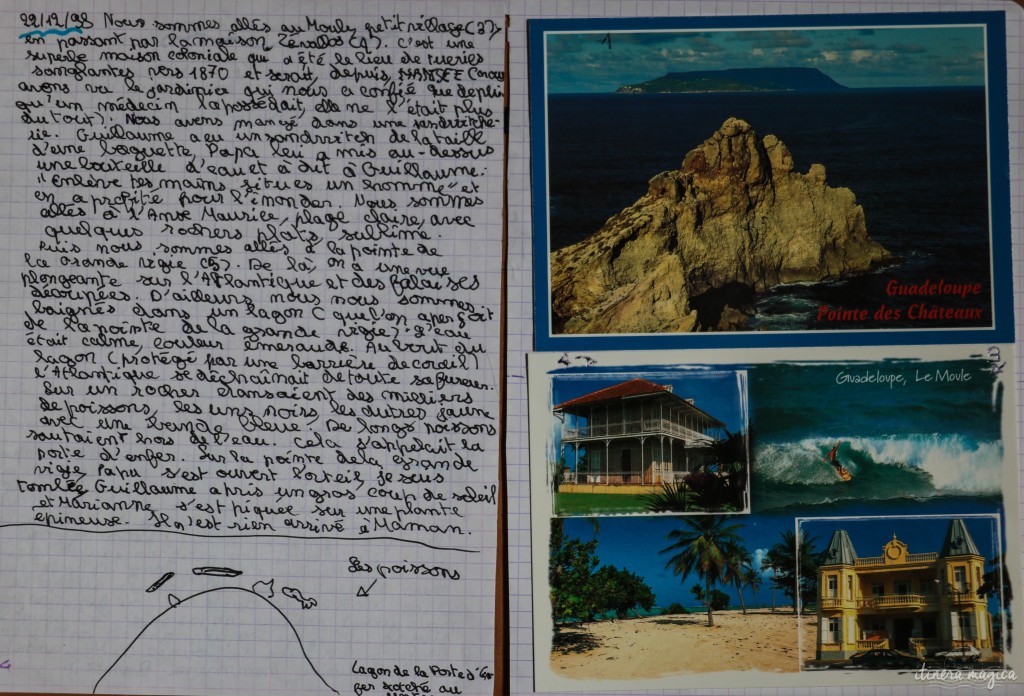 22/12/98 Nous sommes allés au Moule, petit village (3)
en passant par la maison Zevallos (4). C'est une
superbe maison coloniale qui a été le lieu de tueries
sanglantes vers 1870 et serait, depuis, HANTÉE (nous
avons vu le jardinier qui nous a confié que depuis
qu'un médecin la possédait, elle ne l'était plus
du tout). Nous avons mangé dans une sandwiche-
rie. Guillaume a eu un sandwitch de la taille
d'une baguette, Papa lui a mis au-dessus
une bouteille d'eau et a dit à Guillaume:
"Enlève tes mains si tu es un homme" et
en a profité pour l'inonder. Nous sommes
allés à l'Anse Maurice, plage claire, avec
quelques rochers plats, sublime.
Puis nous sommes allés à la pointe de
la Grande Vigie (5). De là, on a une vue
plongeante sur l'Atlantique et des falaises
découpées. D'ailleurs nous nous sommes
baignés dans un lagon (que l'on aperçoit
de la pointe de la grande vigie). L'eau
était calme, couleur émeraude. Au bout du
lagon (protégé par une barrière de corail)
l'Atlantique se déchaînait de toute sa fureur.
Sur un rocher dansaient des milliers
de poissons, les uns noirs, les autres jaune
avec une bande bleue. De longs poissons
sautaient hors de l'eau. Cela s'appelait la
porte d'enfer. Sur la pointe de la grande
vigie Papa s'est ouvert l'orteil, je suis
tombée, Guillaume a pris un gros coup de soleil
et Marianne s'est piquée sur une plante
épineuse. Il n'est rien arrivé à Maman.
Les poissons
Lagon de la Porte d'En-
fer
au
1
Guadeloupe
Pointe des Châteaux
4
3
Guadeloupe, Le Moule
itinera magica